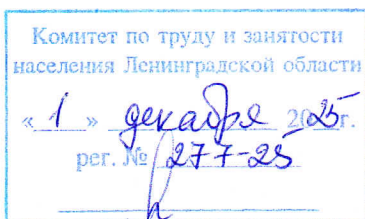 Комитет по труду и занятости
населения Ленинградской области
«1» декабря 2025г.
рег. № 277-25